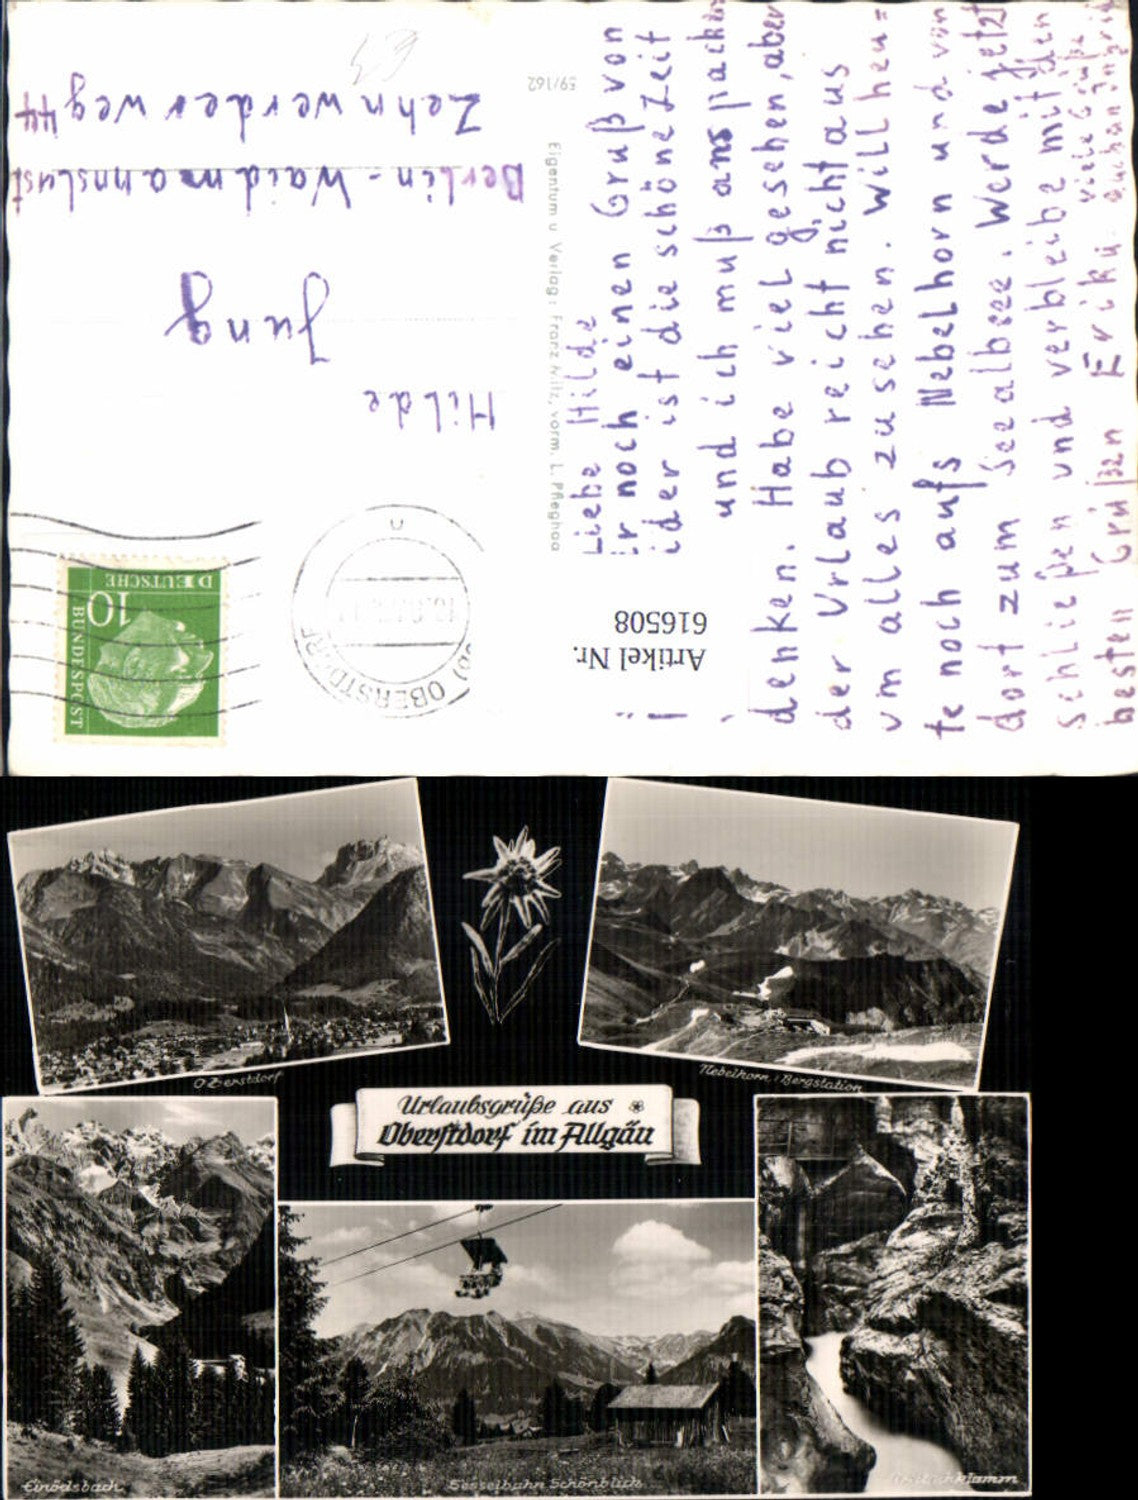 Liebe Hilde
noch einen Gruß von
ider ist die schöne Zeit
und ich muß ans packen
denken. Habe viel gesehen, aber
der Urlaub reicht nicht aus
um alles zusehen. Will heu=
te noch aufs Nebelhorn und von
dort zum Seealbsee. Werde jetzt
schließen und verbleibe mit den
besten Grüßen Erika
viele Grüße
auch an Ingrid
Hilde
Jung
Berlin - Waidmannslust
Zehnwerderweg 44
59/162
Eigentum u. Verlag: Franz Milz, vorm. L. Pfleghaa
Artikel Nr.
616508
DEUTSCHE
BUNDESPOST
10
OBERSTDORF
Oberstdorf
Nebelhorn, Bergstation
Urlaubsgrüße aus
Oberstdorf im Allgäu
Einödsbach
Sesselbahn Schönblick